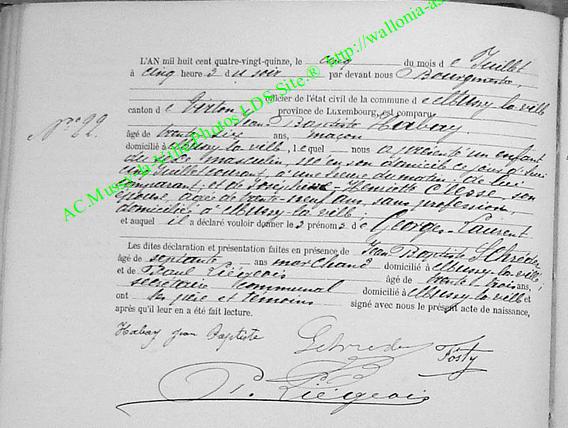 L'AN mil huit cent quatre-vingt-quinze, le cinq du mois de Juillet
à cinq heures du soir par devant nous Bourgmestre
officier de l'état civil de la commune de Mussy-la-ville
canton de Virton province de Luxembourg, est comparu
N° 22. Jean Baptiste Habay
âgé de trente six ans, maçon
domicilié à Mussy-la-ville, lequel nous a présenté un enfant
de sexe masculin, né en son domicile ce jour d'hui
cinq juillet courant, à une heure du matin, de lui
comparant, et de Joséphine Henriette Closse, son
épouse, âgée de trente-neuf ans, sans profession,
domiciliée à Mussy-la-ville;
et auquel il a déclaré vouloir donner les prénoms de Georges Laurent
Les dites déclaration et présentation faites en présence de Jean Baptiste Schréder
âgé de septante ans marchand domicilié à Mussy-la-ville,
et de Paul Liégeois âgé de trente trois ans,
secrétaire communal domicilié à Mussy-la-ville et
ont les père et témoins signé avec nous le présent acte de naissance,
après qu'il leur en a été fait lecture.
Habay Jean Baptiste Schreder Fosty
P. Liégeois
AC.Mussy-la-Ville Photos LDS Site.® http://wallonia-as